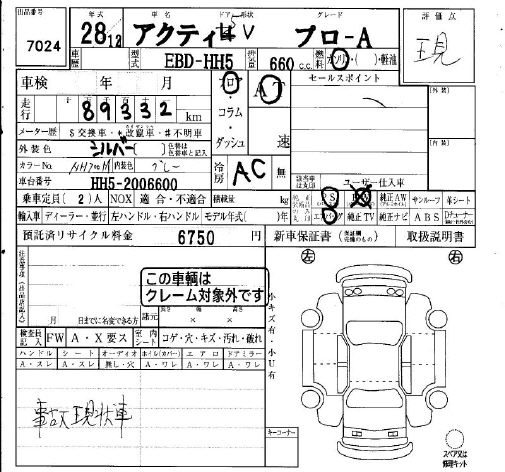 出品番号 7024
年式 28 12
車名 アクティ
ドア 形状 5 V
グレード プロ-A
評価点 現
車歴
型式 EBD-HH5
排量 660 c.c.
燃料 ガソリン・( )・軽油
車検 年 月
走行 89332 km
フロア・コラム・ダッシュ
AT
速
セールスポイント
メーター歴 $交換車・*改竄車・#不明車
外装色 シルバー( ) 色替は色替車と記入
カラーNo. NH700M 内装色 グレー
冷房 AC 無
車台番号 HH5-2006600
ユーザー仕入車
乗車定員(2)人 NOX 適合・不適合 積載量 kg
PS PW 純正AW サンルーフ 革シート
輸入車 ディーラー・並行 左ハンドル・右ハンドル モデル年式( )年
エアバッグ 純正TV 純正ナビ ABS
預託済リサイクル料金 6750 円
新車保証書 取扱説明書
[外装]
[内装]
左 右
この車輌は
クレーム対象外です
月 日までに名変できる方
諸元 長さ × 幅 × 高さ
小キズ有・小U有
検査員記入 FW A・X要ス 室内シート コゲ・穴・キズ・汚れ・破れ
ハンドル シート オーディオ ホイル(カバー) エアロ ドアミラー
A・スレ A・スレ 無し・穴 A・ワレ A・ワレ A・ワレ
事故現状車
キーコーナー
スペア又は
修理キット